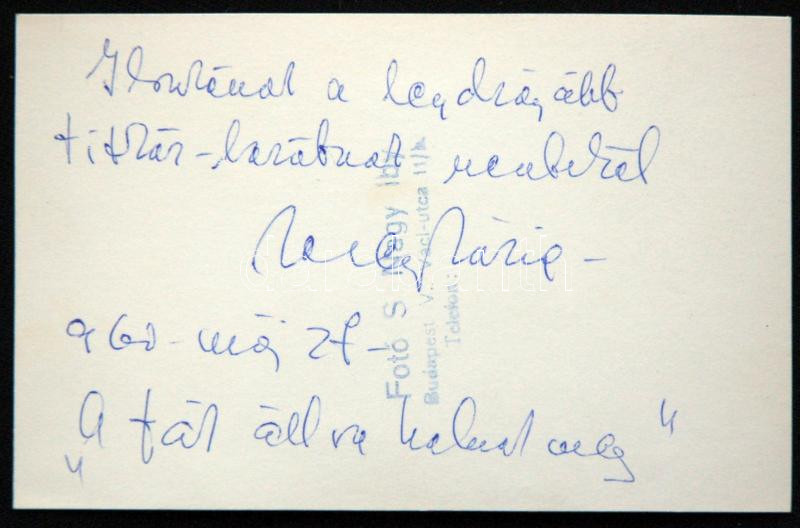 Ilonkának a legdrágább
titkár-barátnak szeretettel
960 máj 27-
"A fák állva halnak meg"
Fotó S. Nagy Iby
Budapest V., Váci-utca 11/b
Telefon: